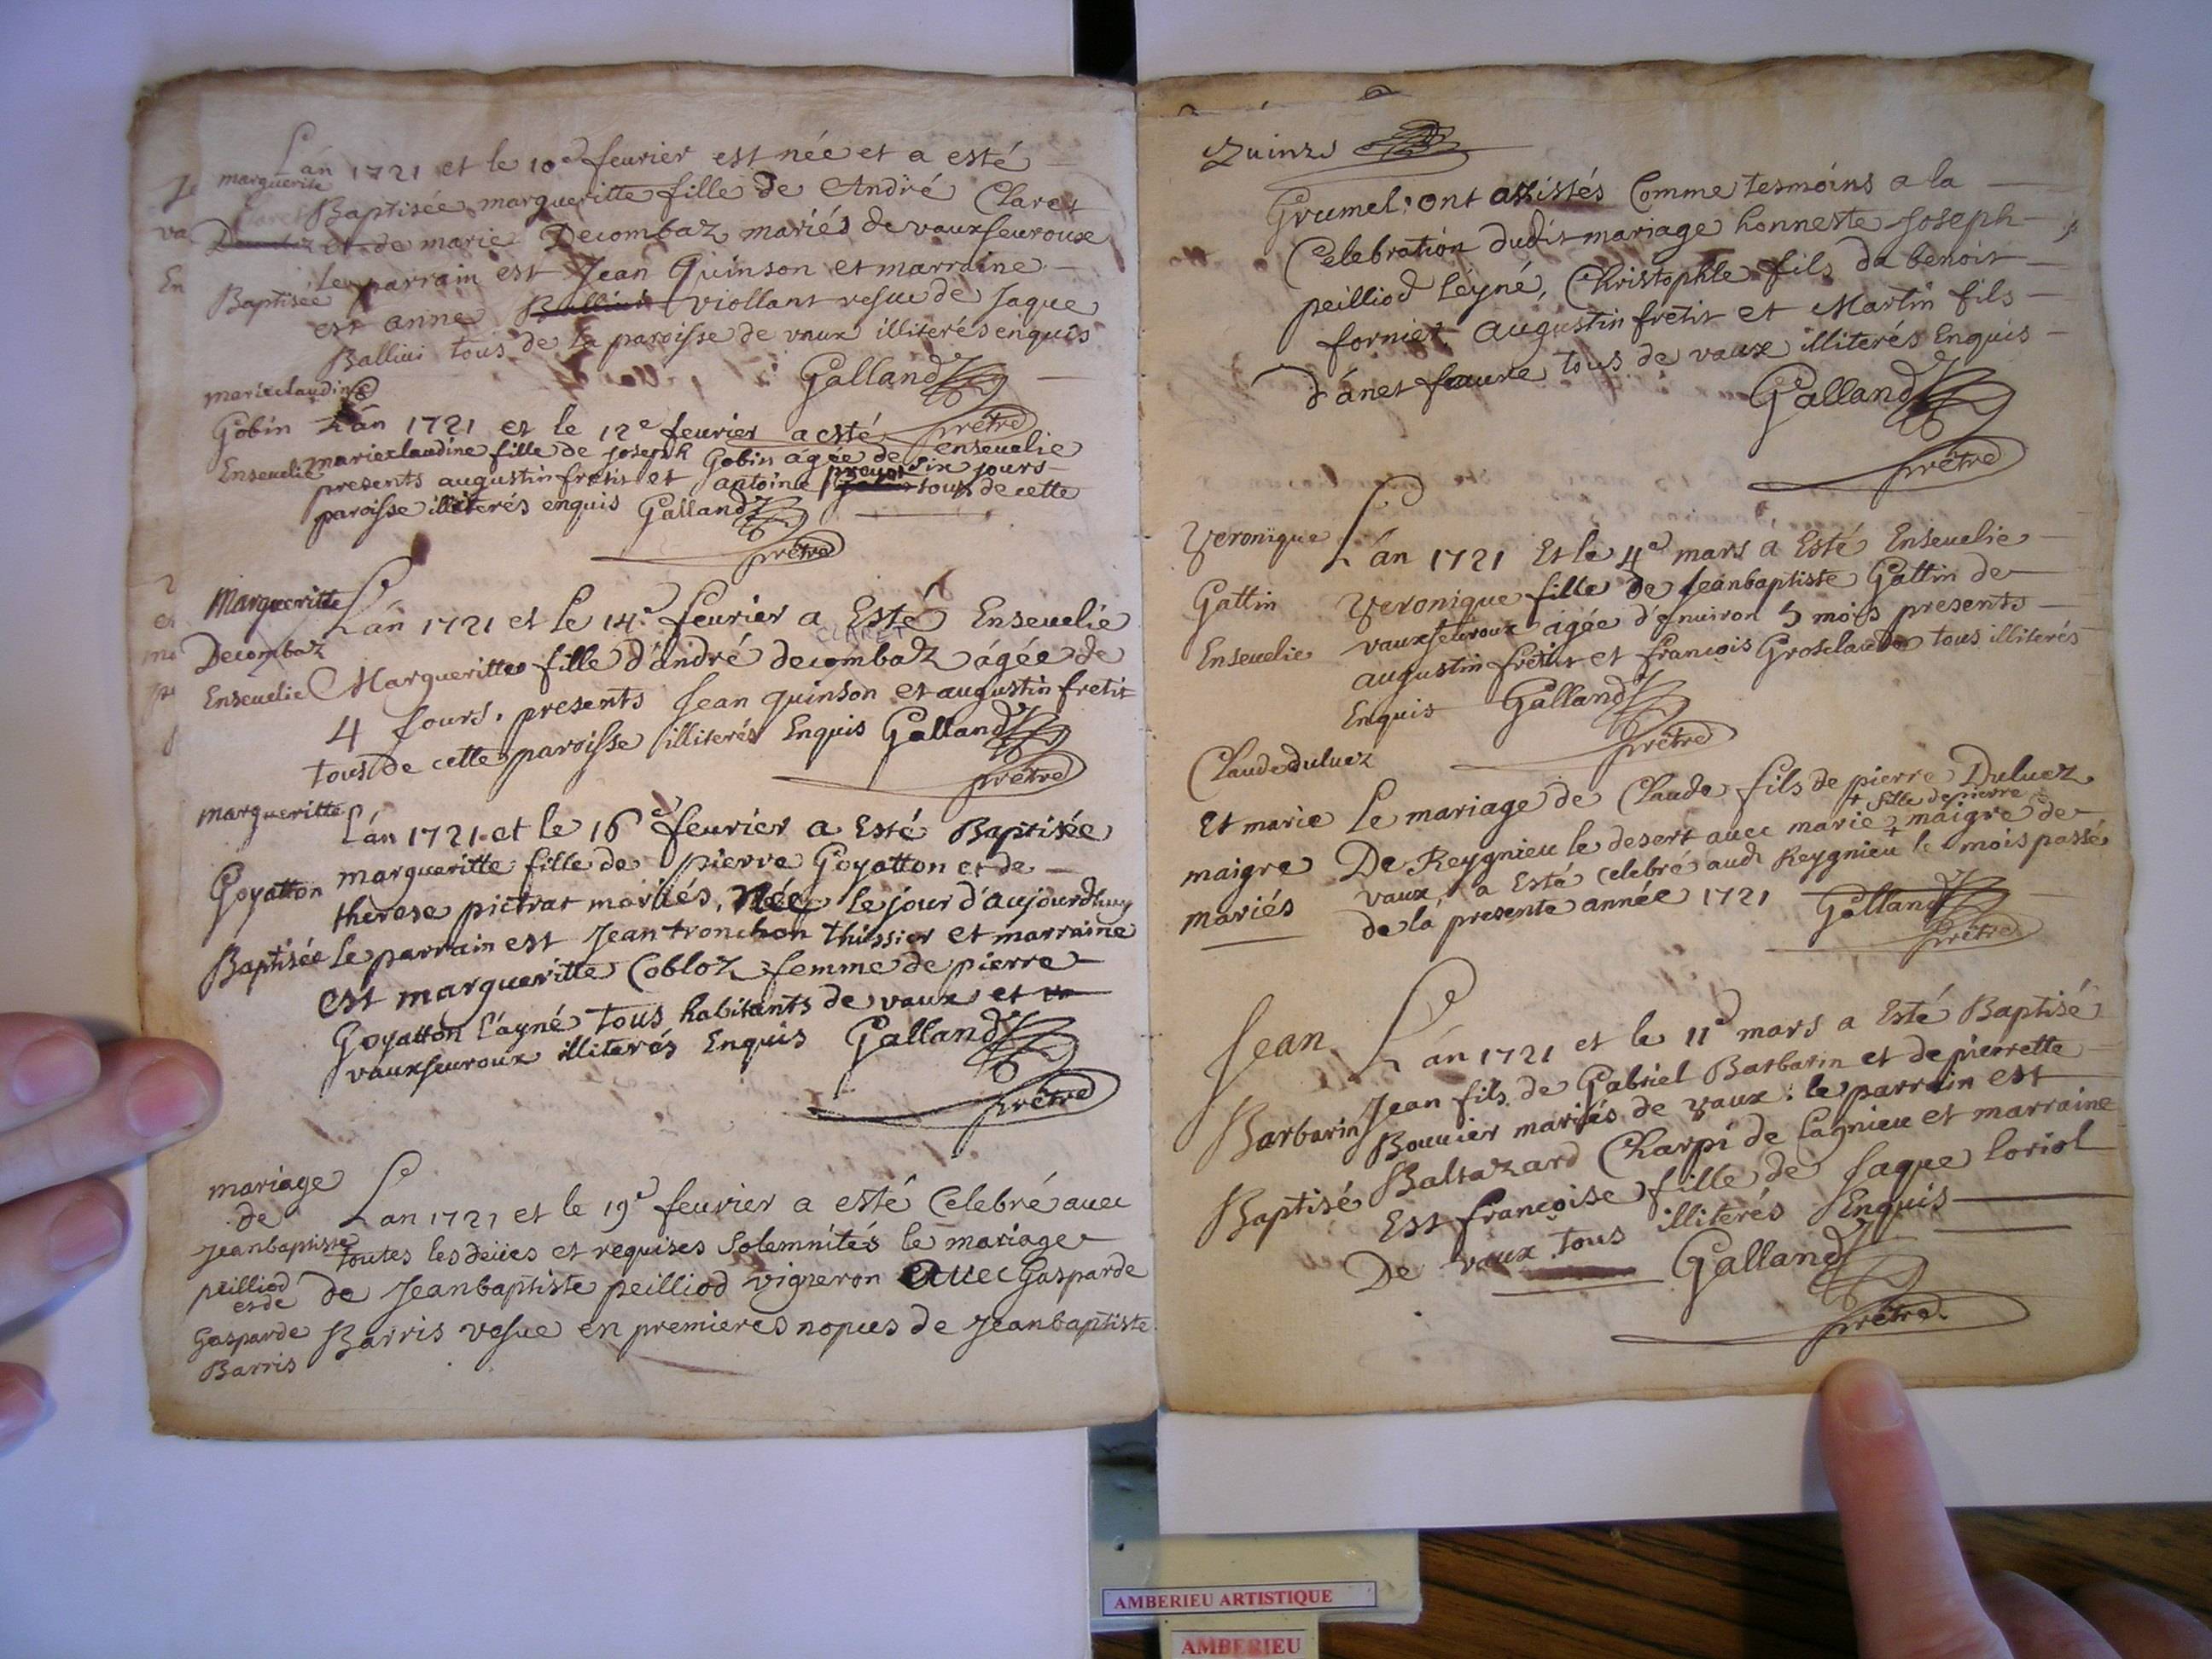 Lan 1721 et le 10e feurier est née et a esté
marguerite
Baptisée margueritte fille de André Claret
et de marie Decombaz mariés de vauxseuroux
le parrain est Jean Quinson et marraine
Baptisée
est anne viollant vefue de Jaque
Balliui tous de la paroisse de vaux illiterés enquis
Galland
prêtre
marieclaudine
Gobin
Enseuelie
Lan 1721 et le 12e feurier a esté enseuelie
marieclaudine fille de Joseph Gobin agée de six jours
presents augustin fretit et antoine tous de cette
paroisse illiterés enquis Galland
prêtre
Margueritte
Decombaz
Enseuelie
Lán 1721 et le 14e feurier a Esté Enseuelie
CLARET
Margueritte fille d'andré decombaz ágée de
4 Jours. presents Jean quinson et augustin fretit
tous de cette paroisse illiterés Enquis Galland
prêtre
margueritte
Goyatton
Baptisée
Lán 1721 et le 16e feurier a Esté Baptisée
margueritte fille de pierre Goyatton et de
therese pictrat mariés, Née le jour d'aujourdhuy
le parrain est Jean tronchon thissier et marraine
est margueritte Cobloz femme de pierre
Goyatton l'ayné tous habitants de vaux et
vauxseuroux illiterés Enquis Galland
prêtre
mariage
de
Jeanbaptiste
peilliod
et de
Gasparde
Barris
Lan 1721 et le 19e feurier a esté Celebré auec
toutes les deües et requises Solemnités le mariage
de Jeanbaptiste peilliod vigneron auec Gasparde
Barris vefue en premieres nopces de Jeanbaptiste
Quinze
Grumel: ont assistés Comme tesmoins a la
Celebration dudit mariage honneste Joseph
peilliod léyné, Christophle fils de benoit
fornier, augustin fretit et Martin fils
d'ánet faure tous de vaux illiterés Enquis
Galland
prêtre
Veronique
Gattin
Enseuelie
Lán 1721 Et le 4e mars a Esté Enseuelie
Veronique fille de Jeanbaptiste Gattin de
vauxseuroux agée d'enuiron 5 mois presents
augustin fretit et francois Grosclaude tous illiterés
Enquis Galland
prêtre
Claude duluez
Et marie
maigre
mariés
Le mariage de Claude fils de pierre Duluez
+ fille de pierre
De Reygnieu le desert auec marie + maigre de
vaux, a Esté celebré aud. Reygnieu le mois passé
de la presente année 1721 Galland
prêtre
Jean
Barbarin
Baptisé
Lan 1721 et le 11e mars a Esté Baptisé
Jean fils de Gabriel Barbarin et de pierrette
Bouuier mariés de vaux: le parrain est
Baltazard Charpi de Lagnieu et marraine
Est francoise fille de Jaque loriol
De vaux tous illiterés Enquis
Galland
prêtre.
AMBERIEU ARTISTIQUE
AMBERIEU